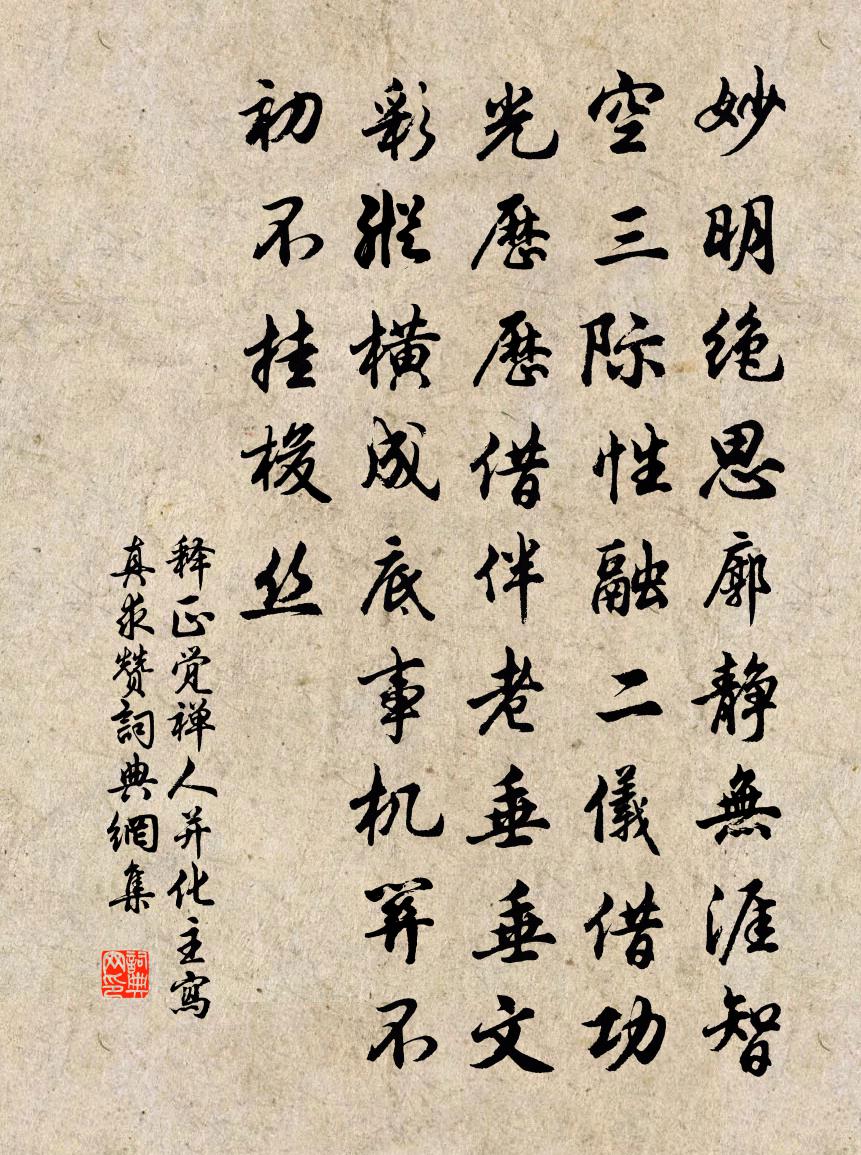 妙明绝思廓静無涯智
空三际性融二儀借功
光歷歷借伴老垂垂文
彩縱横成底事机不
初不挂梭丝
释正觉禅人并化主寫
真求赞詞典網集
詞典
网印